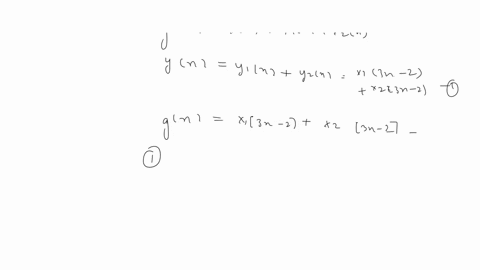 y(n) = y1(n) + y2(n) = x1(3n-2)
+ x2(3n-2) -①
g(n) = x1[3n-2] + x2 [3n-2] -
①